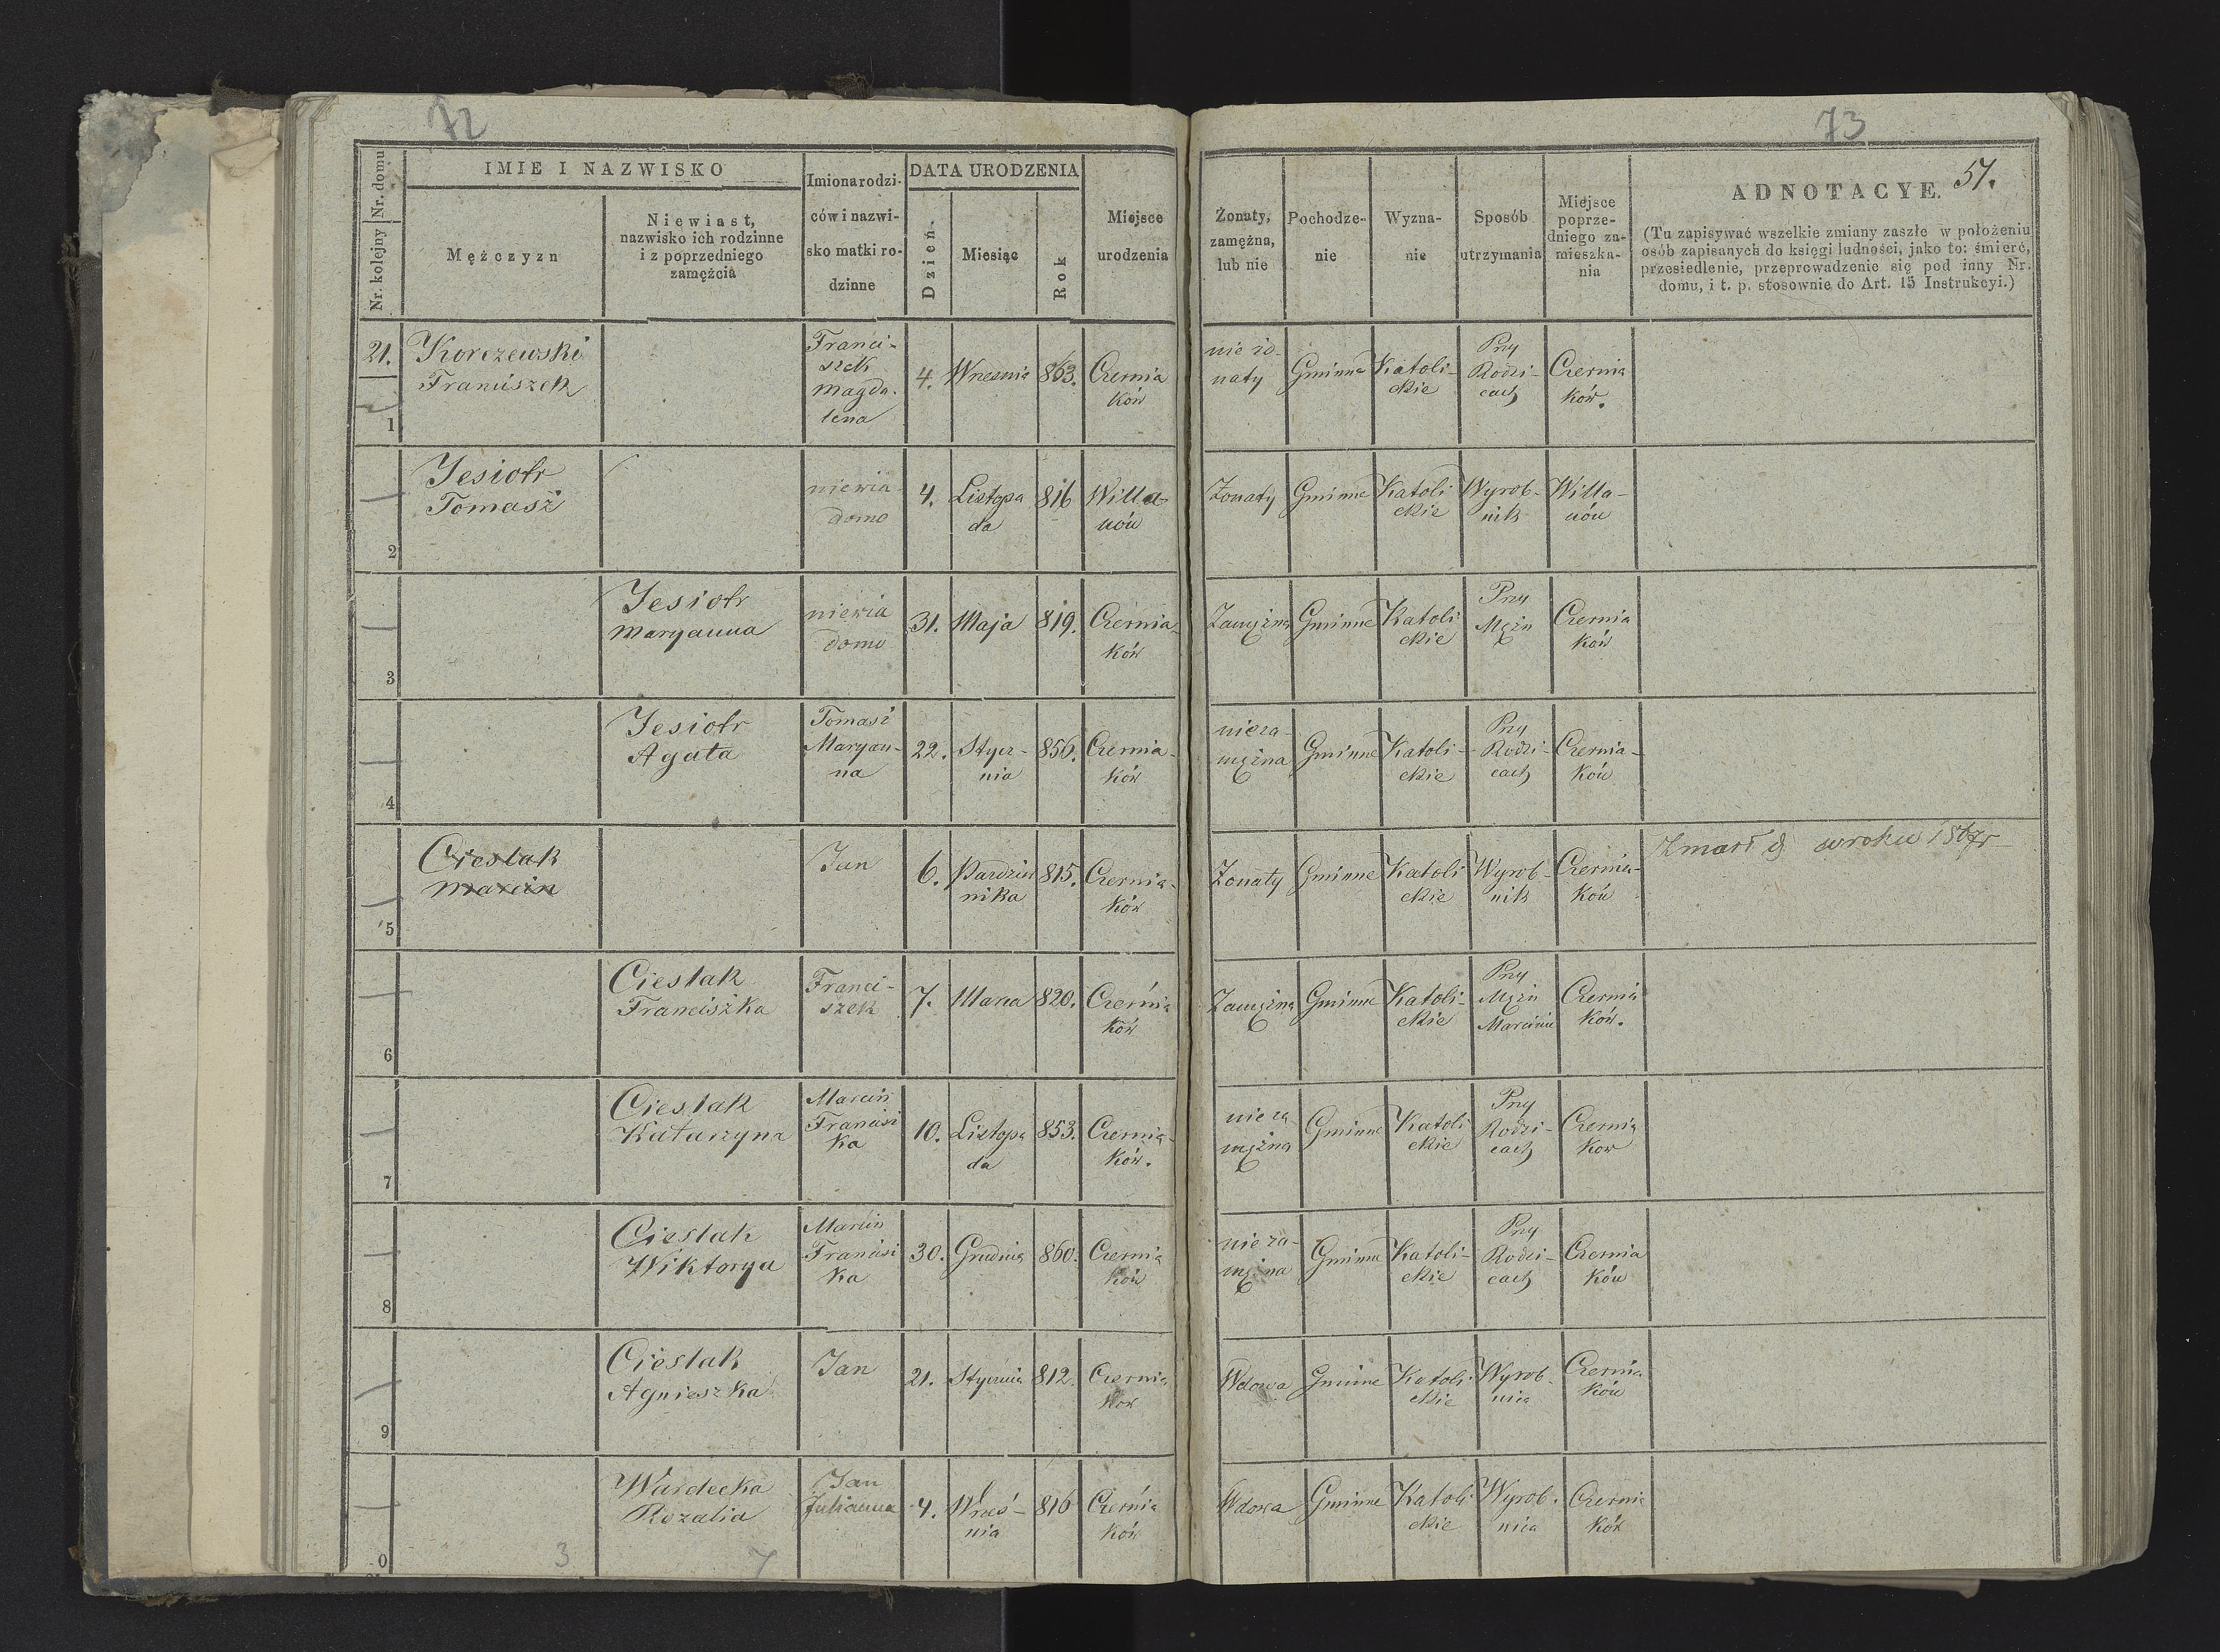 72
Nr. kolejny Nr. domu
IMIE I NAZWISKO
Mężczyzn
Niewiast,
nazwisko ich rodzinne
i z poprzedniego
zamężcia
Imiona rodzi-
ców i nazwi-
sko matki ro-
dzinne
DATA URODZENIA
Dzień.
Miesiąc
Rok
Miejsce
urodzenia
73
Żonaty,
zamężna,
lub nie
Pochodze-
nie
Wyzna-
nie
Sposób
utrzymania
Miejsce
poprze-
dniego za-
mieszka-
nia
ADNOTACYE.
57.
(Tu zapisywać wszelkie zmiany zaszłe w położeniu
osób zapisanych do księgi ludności, jako to: śmierć,
przesiedlenie, przeprowadzenie się pod inny Nr.
domu, i t. p. stosownie do Art. 15 Instrukcyi.)
21.
1
Korczewski
Franciszek
Franci-
szek
Magda-
lena
4.
Wrzesnia
863.
Czernia
ków
nie żo-
naty
Gminne
Katoli-
ckie
Przy
Rodzi-
cach
Czernia
ków.
2
Jesiotr
Tomasz
niewia
domo
4.
Listopa
da
816
Willa-
nów
Żonaty
Gminne
Katoli
ckie
Wyrob-
nik
Willa-
nów
3
Jesiotr
Maryanna
niewia
domo
31.
Maja
819.
Czernia-
ków
Zamężna
Gminne
Katoli
ckie
Przy
Mężu
Czernia
ków
4
Jesiotr
Agata
Tomasz
Maryan-
na
22.
Stycz-
nia
856.
Czernia-
ków
nieza-
mężna
Gminne
Katoli-
ckie
Przy
Rodzi-
cach
Czernia-
ków
5
Cieslak
Marcin
Jan
6.
Pazdzier
nika
815.
Czernia-
ków
Żonaty
Gminne
Katoli
ckie
Wyrob-
nik
Czernia-
ków
Zmarł w roku 1867r
6
Cieslak
Franciszka
Franci-
szek
7.
Marca
820.
Czernia
ków
Zamężna
Gminne
Katoli-
ckie
Przy
Mężu
Marcinie
Czernia
ków.
7
Cieslak
Katarzyna
Marcin
Francisz
ka
10.
Listopa
da
853.
Czernia-
ków.
nieza
mężna
Gminne
Katoli
ckie
Przy
Rodzi-
cach
Czernia
kow
8
Cieslak
Wiktorya
Marcin
Francisz
ka
30.
Grudnia
860.
Czernia
ków
nieza-
mężna
Gminne
Katoli-
ckie
Przy
Rodzi-
cach
Czernia
ków
9
Cieslak
Agnieszka
Jan
21.
Stycznia
812.
Czernia
kow
Wdowa
Gminne
Katoli
ckie
Wyrob-
nica
Czernia
ków
0
Wardecka
Rozalia
Jan
Julianna
4.
Wrześ-
nia
816
Czernia
ków
Wdowa
Gminne
Katoli
ckie
Wyrob-
nica
Czernia
ków
3
7